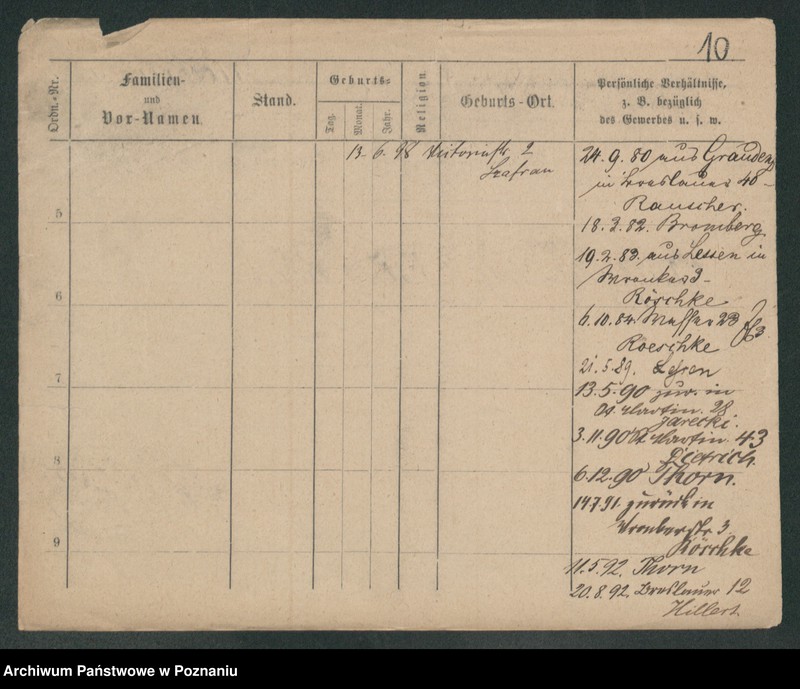 10
Ordn.-Nr.
Familien-
und
Vor-Namen
Stand.
Geburts-
Tag.
Monat.
Jahr.
Religion
Geburts-Ort.
Persönliche Verhältnisse,
z. B. bezüglich
des Gewerbes u. s. w.
13. 6. 98 Victoriastr 2
Szafran
24. 9. 80 aus Graudenz
in Breslauer 40
Rauscher.
5
18. 3. 82. Bromberg
19. 2. 83. aus Lessen in
3
6
Röschke
6. 10. 84. 23
Roeschke
21. 5. 89.
7
13. 5. 90 zur. in
St. Martin 28
Jarecki.
3. 11. 90 St. Martin 43
8
Dietrich
6. 12. 90 Thorn.
14 7. 91. zurück in
3
9
Röschke
11. 5. 92. Thorn
20. 8. 92. Breslauer 12
Hillert.
Archiwum Państwowe w Poznaniu